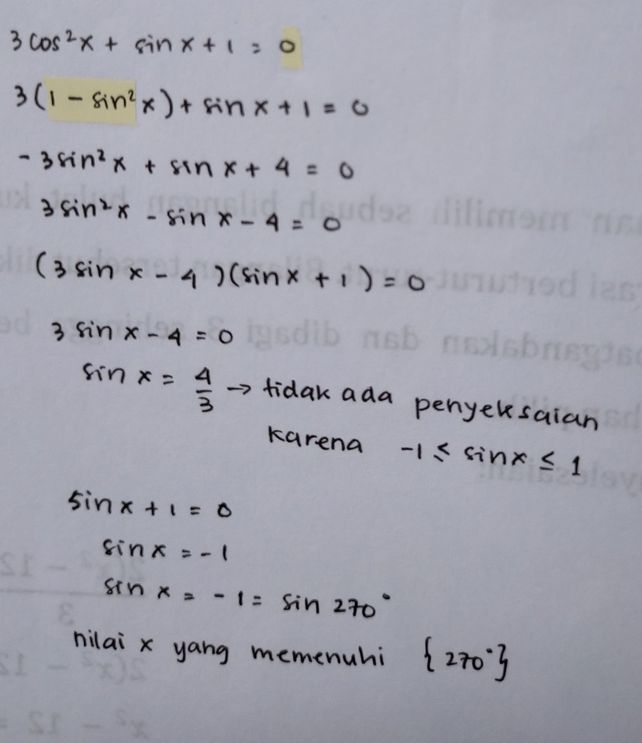 3 cos²x + sin x + 1 = 0
3(1 - sin²x) + sin x + 1 = 0
- 3 sin²x + sin x + 4 = 0
3 sin²x - sin x - 4 = 0
(3 sin x - 4)(sin x + 1) = 0
3 sin x - 4 = 0
sin x = 4/3 → tidak ada penyelesaian
karena -1 ≤ sin x ≤ 1
sin x + 1 = 0
sin x = -1
sin x = -1 = sin 270°
nilai x yang memenuhi {270°}